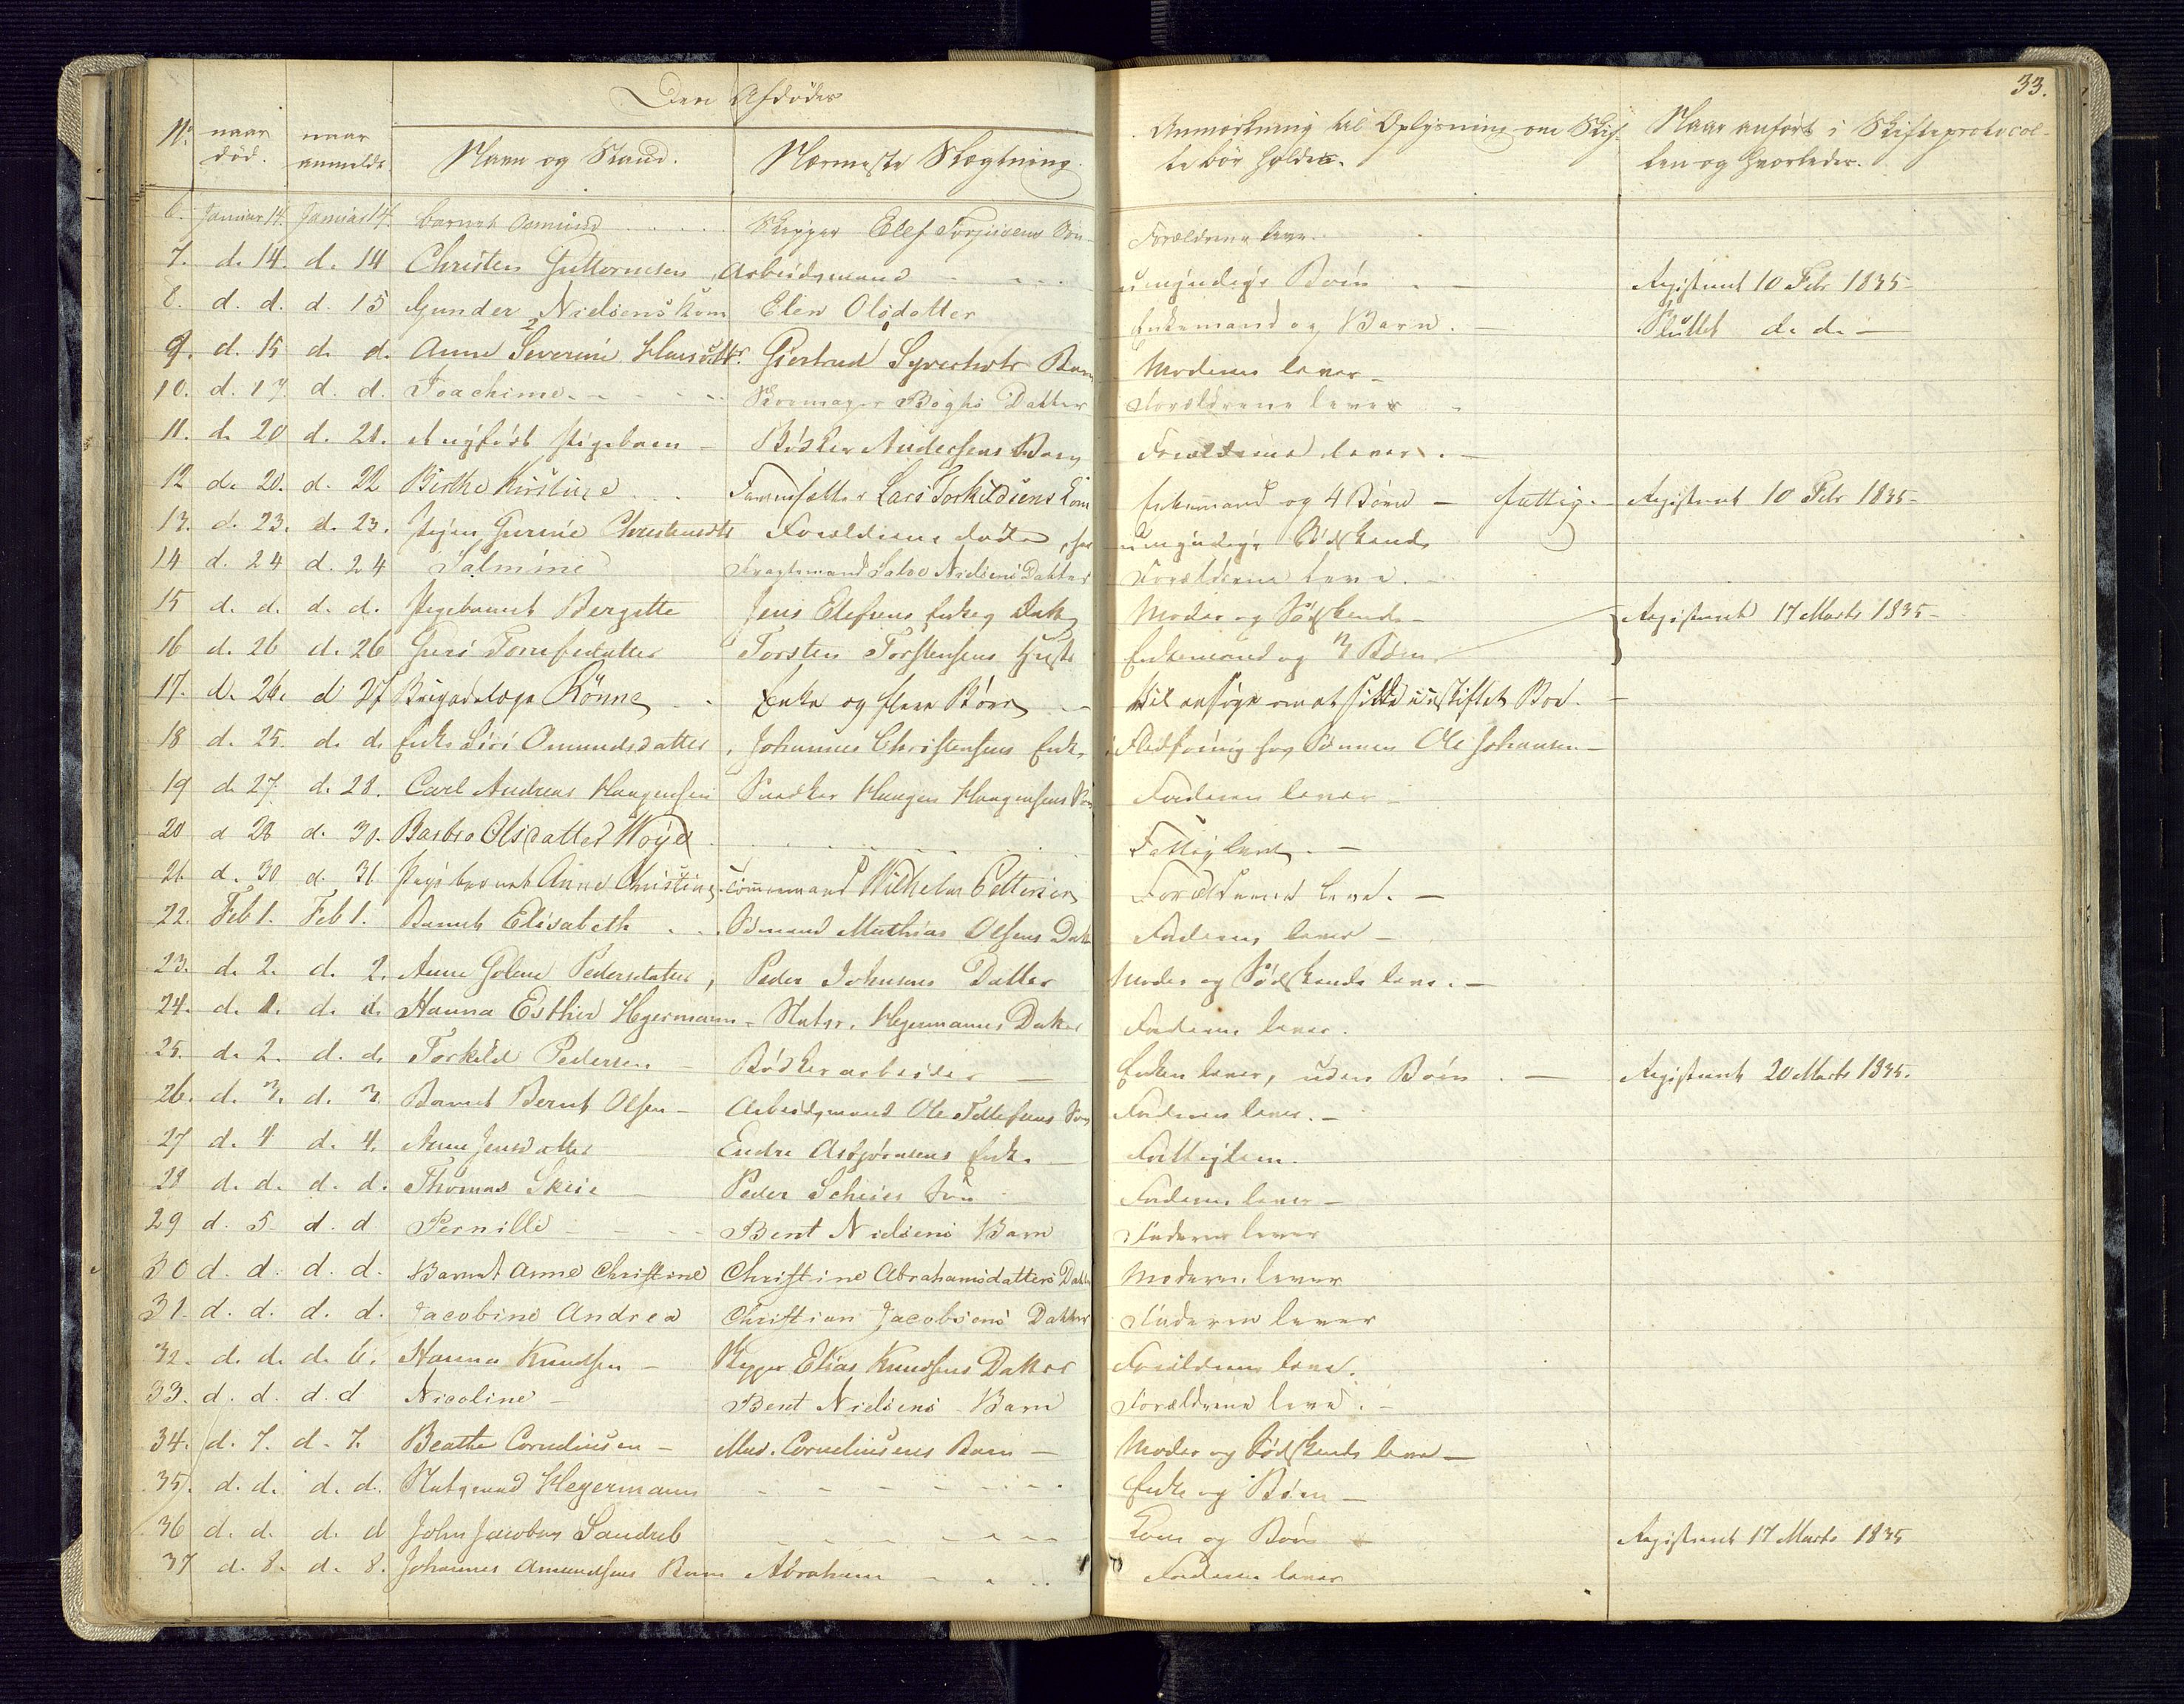 33.
Den Afdødes
No naar død. naar anmeldt Navn og Stand. Nærmeste Slægtning. Anmærkning til Oplysning om Skifte bør holdes. Naar anført i Skifteprotocollen og hvorledes.
6. Januar 14. Januar 14. barnet Asmund Skipper Elef Torjusens Søn Forældrene leve.
7. d. 14. d. 14 Christen Guttormsen, Arbeidsmand umyndige Børn Registeret 10 Feb. 1835
8. d. d. d. 15 Gunder Nielsens Kone Elen Olsdatter Enkemand og Barn. Sluttet d. d.
9. d. 15 d. d. Anne Severine Hansdtr. Giertrud Syvertsdtr Barn Moderen lever
10. d. 17. d. d. Joachime Skomager Böghs Datter Forældrene lever
11. d. 20 d. 21. et nyfødt Pigebarn Bødker Andersens Barn Forældrene lever.
12 d. 20. d. 22 Birthe Kirstine Lars Torkildsens Kone Enkemand og 4 Børn fattig. Registeret 10 Feb. 1835
13. d. 23. d. 23. Pigen Gurine Christensdtr Forældrene døde, har umyndige Sødskende
14 d. 24 d. 24 Salmine Fragtemand Salve Nielsens Datter Forældrene leve.
15 d. d. d. d. Pigebarnet Bergitte Jens Elefsens Enkes Datter Moder og Sødskende Registeret 17 Marts 1835
16 d. 26 d. 26 Guri Tonnesdatter Torsten Torstensens Hustru Enkemand og 3 Børn
17. d. 26. d 27 Brigadelæge Rönne Enke og flere Børn vil ansøge om at sidde i uskiftet Bo.
18 d. 25. d. d. Enke Siri Omundsdatter, Johannes Christensens Enke Fledføring hos Sønnen Ole Johansen
19 d. 27. d. 28. Carl Andreas Haagensen Snedker Haagen Haagensens Søn Faderen lever
20 d 28 d. 30. Barbro Olsdatter Höye Fattiglem.
21. d. 30 d. 31 Pigebarnet Anne Christine, Tømmermand Wilhelm Pettersen Forældrene leve.
22. Feb 1. Feb 1. Barnet Elisabeth Sömand Mathias Olsens Datter Faderen lever
23. d. 2. d. 2. Anne Golene Pedersdatter, Peder Johnsens Datter Moder og Sødskende leve.
24. d. 2. d. d. Hanna Esther Hegermann Statsr. Hegermanns Datter Faderen lever.
25. d. 2. d. d. Torkild Pedersen Bødkerarbeider Enken lever, uden Børn Registeret 20 Marts 1835.
26. d. 3. d. 3. Barnet Bernt Olsen Arbeidsmand Ole Tellefsens Søn Faderen lever.
27 d. 4 d. 4. Anne Jensdatter Endre Asbjørnsens Enke Fattiglem.
28 d. d. d. d. Thomas Skeie Peder Scheies Søn Faderen lever
29 d. 5. d. d Pernille Bent Nielsens Barn Faderen lever
30 d. d. d. d. Barnet Anne Christine Christine Abrahamsdatters Datter Moderen lever
31. d. d. d. d. Jacobine Andrea Christian Jacobsens Datter Faderen lever
32. d. d. d. 6. Hanna Knudsen Skipper Elias Knudsens Datter Forældrene leve.
33. d. d. d. d Nicoline Bent Nielsens Barn Forældrene leve.
34. d. 7. d. 7. Beathe Corneliusen Mad. Corneliusens Barn Moder og Sødskende leve
35. d. d. d. d. Statsraad Hegermann Enke og Børn
36 d. d. d. d John Jacobsen Kone og Børn Registeret 17 Marts 1835
37 d. 8. d. 8. Johannes Amundsens Barn Abraham Faderen lever